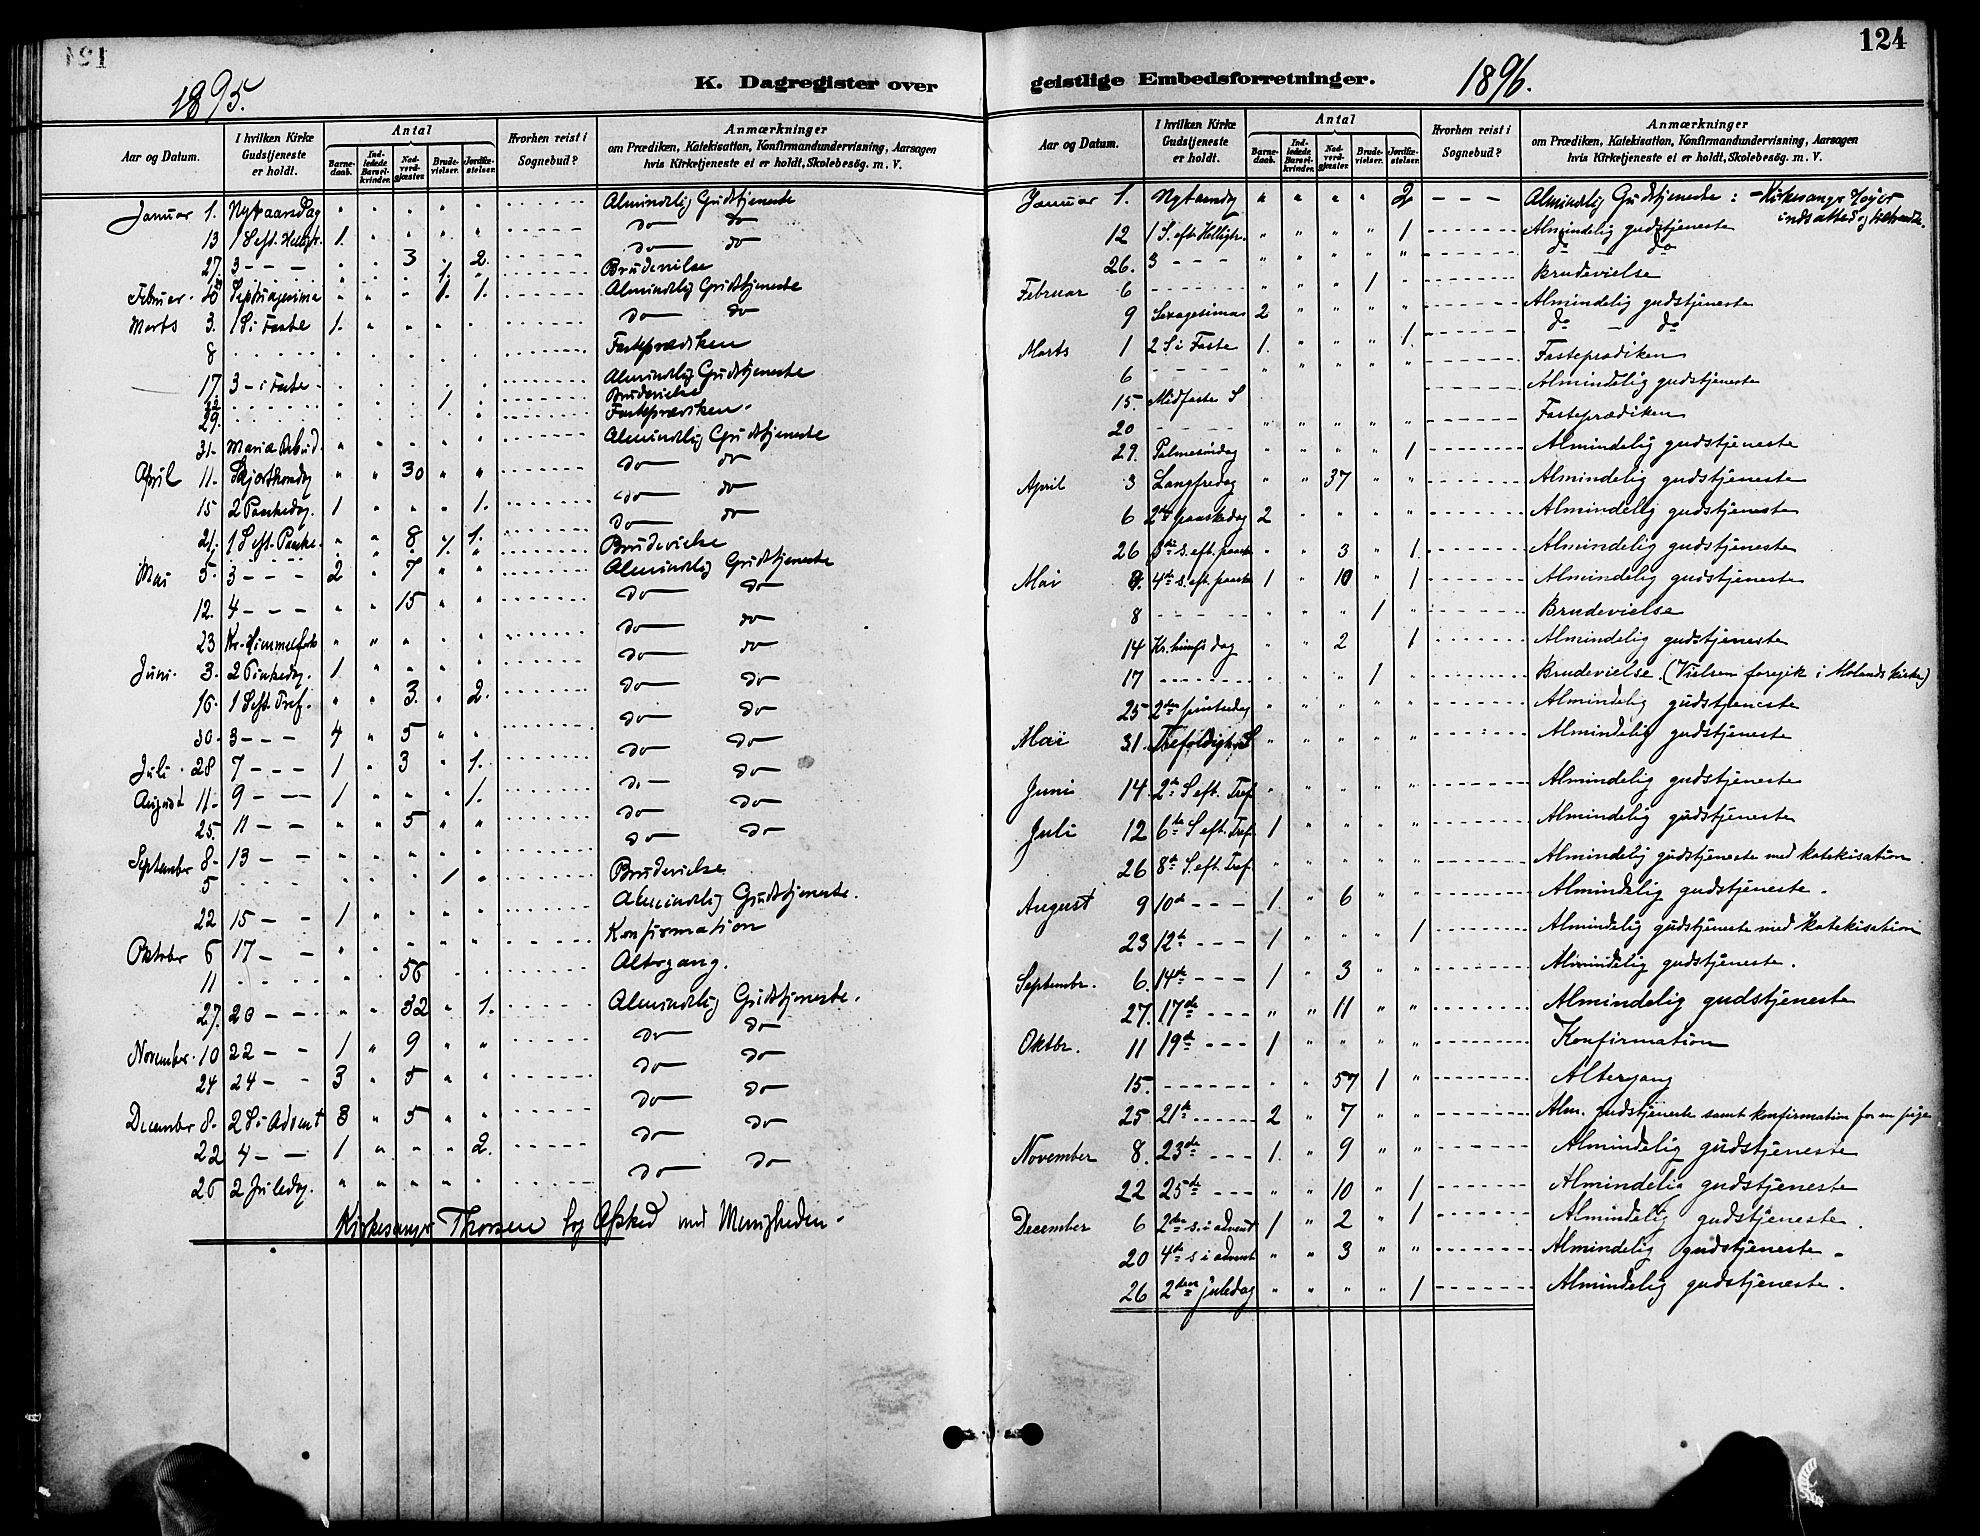 124
K. Dagregister over
1895.
Aar og Datum. I hvilken Kirke Gudstjeneste er holdt. Antal Barne-daab. Ind-ledede Barsel-kvinder. Nad-verd-gjæster. Brude-vielser. Jordfæ-stelser. Hvorhen reist i Sognebud? Anmærkninger om Prædiken, Katekisation, Konfirmandundervisning, Aarsagen hvis Kirketjeneste ei er holdt, Skolebesøg. m. V.
Januar 1. Nytaarsdag " " " " " Almindelig Gudstjeneste
13 1 S eft. Helligtr. 1. " " " " do do
27. 3 - - - " " 3 " 2. do do
" " " 1. " Brudevielse
Februar 10 Septuagesima " " " 1. 1. Almindelig Gudstjeneste
Marts 3. 1 S. i Faste 1. " " " " do do
8 Fasteprædiken
17 3 - i Faste - Almindelig Gudstjeneste
22 1 Brudevielse
29. Fasteprædiken.
31. Maria Bebud. " " " " " Almindelig Gudstjeneste
April 11. Skjærthorsdag " " 30 " " do do
15 2 Paaskedag. 1 " " " 1. do do
21. 1 S eft. Paaske. " " 8 " 1. do do
1. " Brudevielse
Mai 5. 3 - - - 2 " 7 " " Almindelig Gudstjeneste
12. 4 - - - " " 15 " " do do
23 Kr. Himmelfarts " " " " " do do
Juni. 3. 2 Pinsedag. 1 " " " " do do
16. 1 S eft. Tref. " " 3. " 2. do do
30. 3 - - - 4 " 5 " " do do
Juli. 28 7 - - - 1 " 3 " 1. do do
August 11. 9 - - - 1 " " " 1. do do
25. 11 - - " " 5 " " do do
September 8. 13 - - " " " " " do do
5 1 " Brudevielse
22 15 - - 1 " " " " Almindelig Gudstjeneste.
Oktober 6 17 - - " " " " " Konfirmation
11 56 Altergang.
27. 20 - - " " 32 " 1. Almindelig Gudstjeneste.
November. 10 22 - - 1 " 9 " " do do
24 24 - - 3 " 5 " " do do
December 8. 2 S i Advent 3 " 5 " " do do
22 4 - - 1 " " " 2. do do
26 2 Juledag. " " " " " do do
Kirkesanger Thorsen tog Afsked med Menigheden.
geistlige Embedsforretninger.
1896.
Aar og Datum. I hvilken Kirke Gudstjeneste er holdt. Antal Barne-daab. Ind-ledede Barsel-kvinder. Nad-verd-gjæster. Brude-vielser. Jordfæ-stelser. Hvorhen reist i Sognebud? Anmærkninger om Prædiken, Katekisation, Konfirmandundervisning, Aarsagen hvis Kirketjeneste ei er holdt, Skolebesøg. m. V.
Januar 1. Nytaarsdag " " " " 2 - - - Almindelig Gudstjeneste: - Kirkesanger
indsatted og tiltraadte.
12 1 S. eft. Helligtr. " " " " 1 Almindelig gudstjeneste
26. 3 - - - " " " " " do do
Februar 6 " " " 1 " Brudevielse
9 Sexagesima 2 " " " " Almindelig gudstjeneste
Marts 1 2 S i Faste 1. " " " 1. do - do
6 " " " " " Fasteprædiken
15. Midfaste S Almindelig gudstjeneste
20 " " " " " Fasteprædiken
29. Palmesøndag " " " " 1 Almindelig gudstjeneste
April 3 Langfredag " " 37 " " Almindelig gudstjeneste
6 2den paaskedag 2 " " " " Almindelig gudstjeneste
26 3de s. eft. paaske " " 3 " 1. Almindelig gudstjeneste
Mai 4de s. eft. paaske 1 " 10 " 1 Almindelig gudstjeneste
8 " " " 1 " Brudevielse
14 Kr. himfs dag " " 2 " 1 Almindelig gudstjeneste
17 " " " 1 " Brudevielse (Vielsen foregik i Molands kirke)
25 2den pintsedag " " " " " Almindelig gudstjeneste
Mai 31. Trefoldigh. S " " " " " Almindelig gudstjeneste
Juni 14. 2de S eft. Tref. " " " " " Almindelig gudstjeneste
Juli 12 6te S eft. Tref. 1 " " " " Almindelig gudstjeneste
26 8de S. eft. Tref. " " " " " Almindelig gudstjeneste med katekisation
August 9 10de - - - 1 " 6 " " Almindelig gudstjeneste.
23 12te - - - 1 " " " 1 Almindelig gudstjeneste med katekisation
Septembr. 6. 14de - - - 1 " 3 " " Almindelig gudstjeneste.
27. 17de - - - " " 11 " " Almindelig gudstjeneste
Oktbr. 11 19de - - - 1 " " " " Konfirmation
15. " " 57 1 " Altergang
25 21de 2 " 7 " " Alm. gudstjeneste samt konfirmation for en pige
November 8. 23de - - - 1. " 9 " " Almindelig gudstjeneste
22 25de - - - " " 10 " 1 Almindelig gudstjeneste
December 6 2den s. i advent 1 " 2 " 1 Almindelig gudstjeneste.
20 4de s i advent " " 3 " " Almindelig gudstjeneste.
26 2den juledag " " " " 1 Almindelig gudstjeneste.